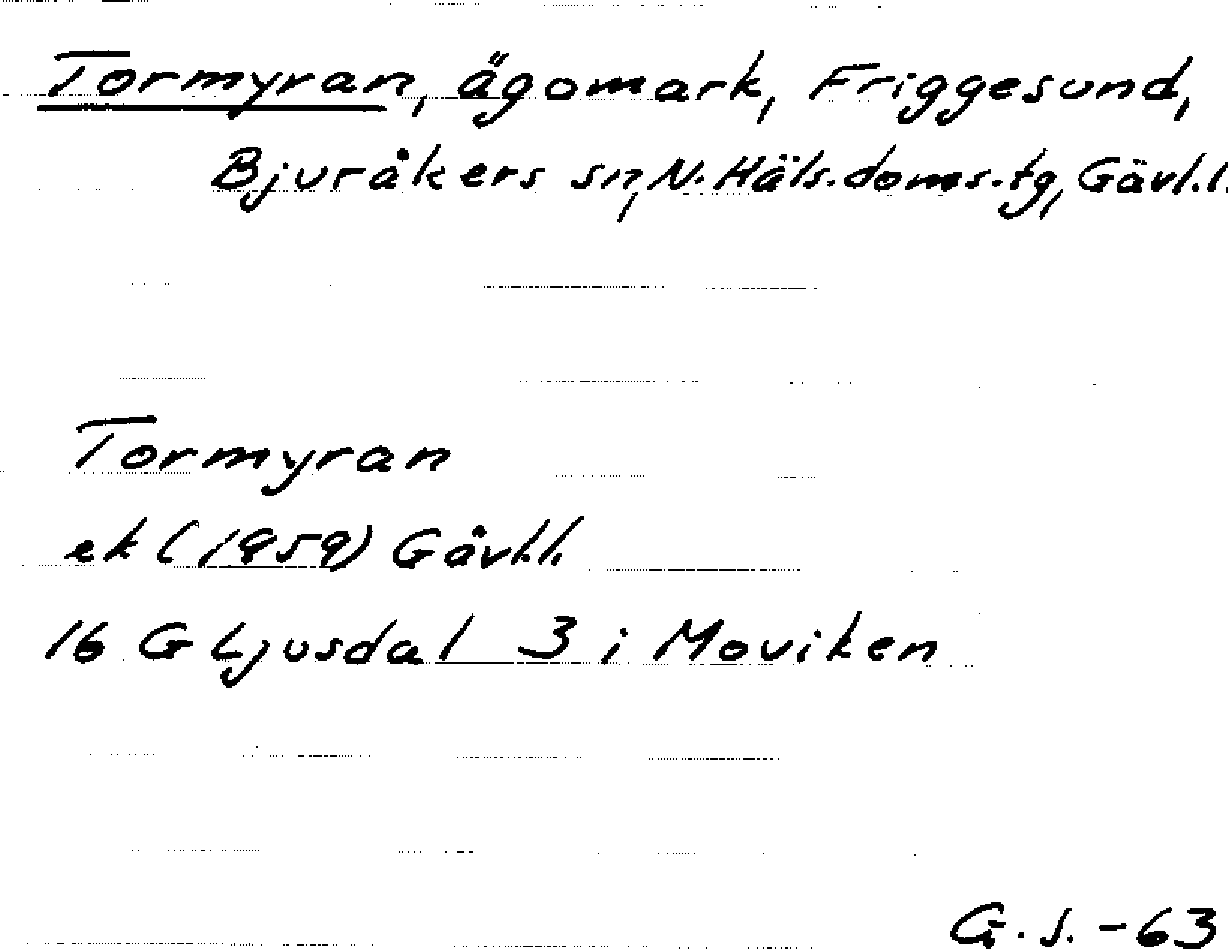 Tormyran, ägomark, Friggesund,
Bjuråkers sn, N. Häls. doms. tg, Gävl. l.
Tormyran
ek (1959) Gävl. l.
16 G Ljusdal 3 i Moviken
G. S. -63